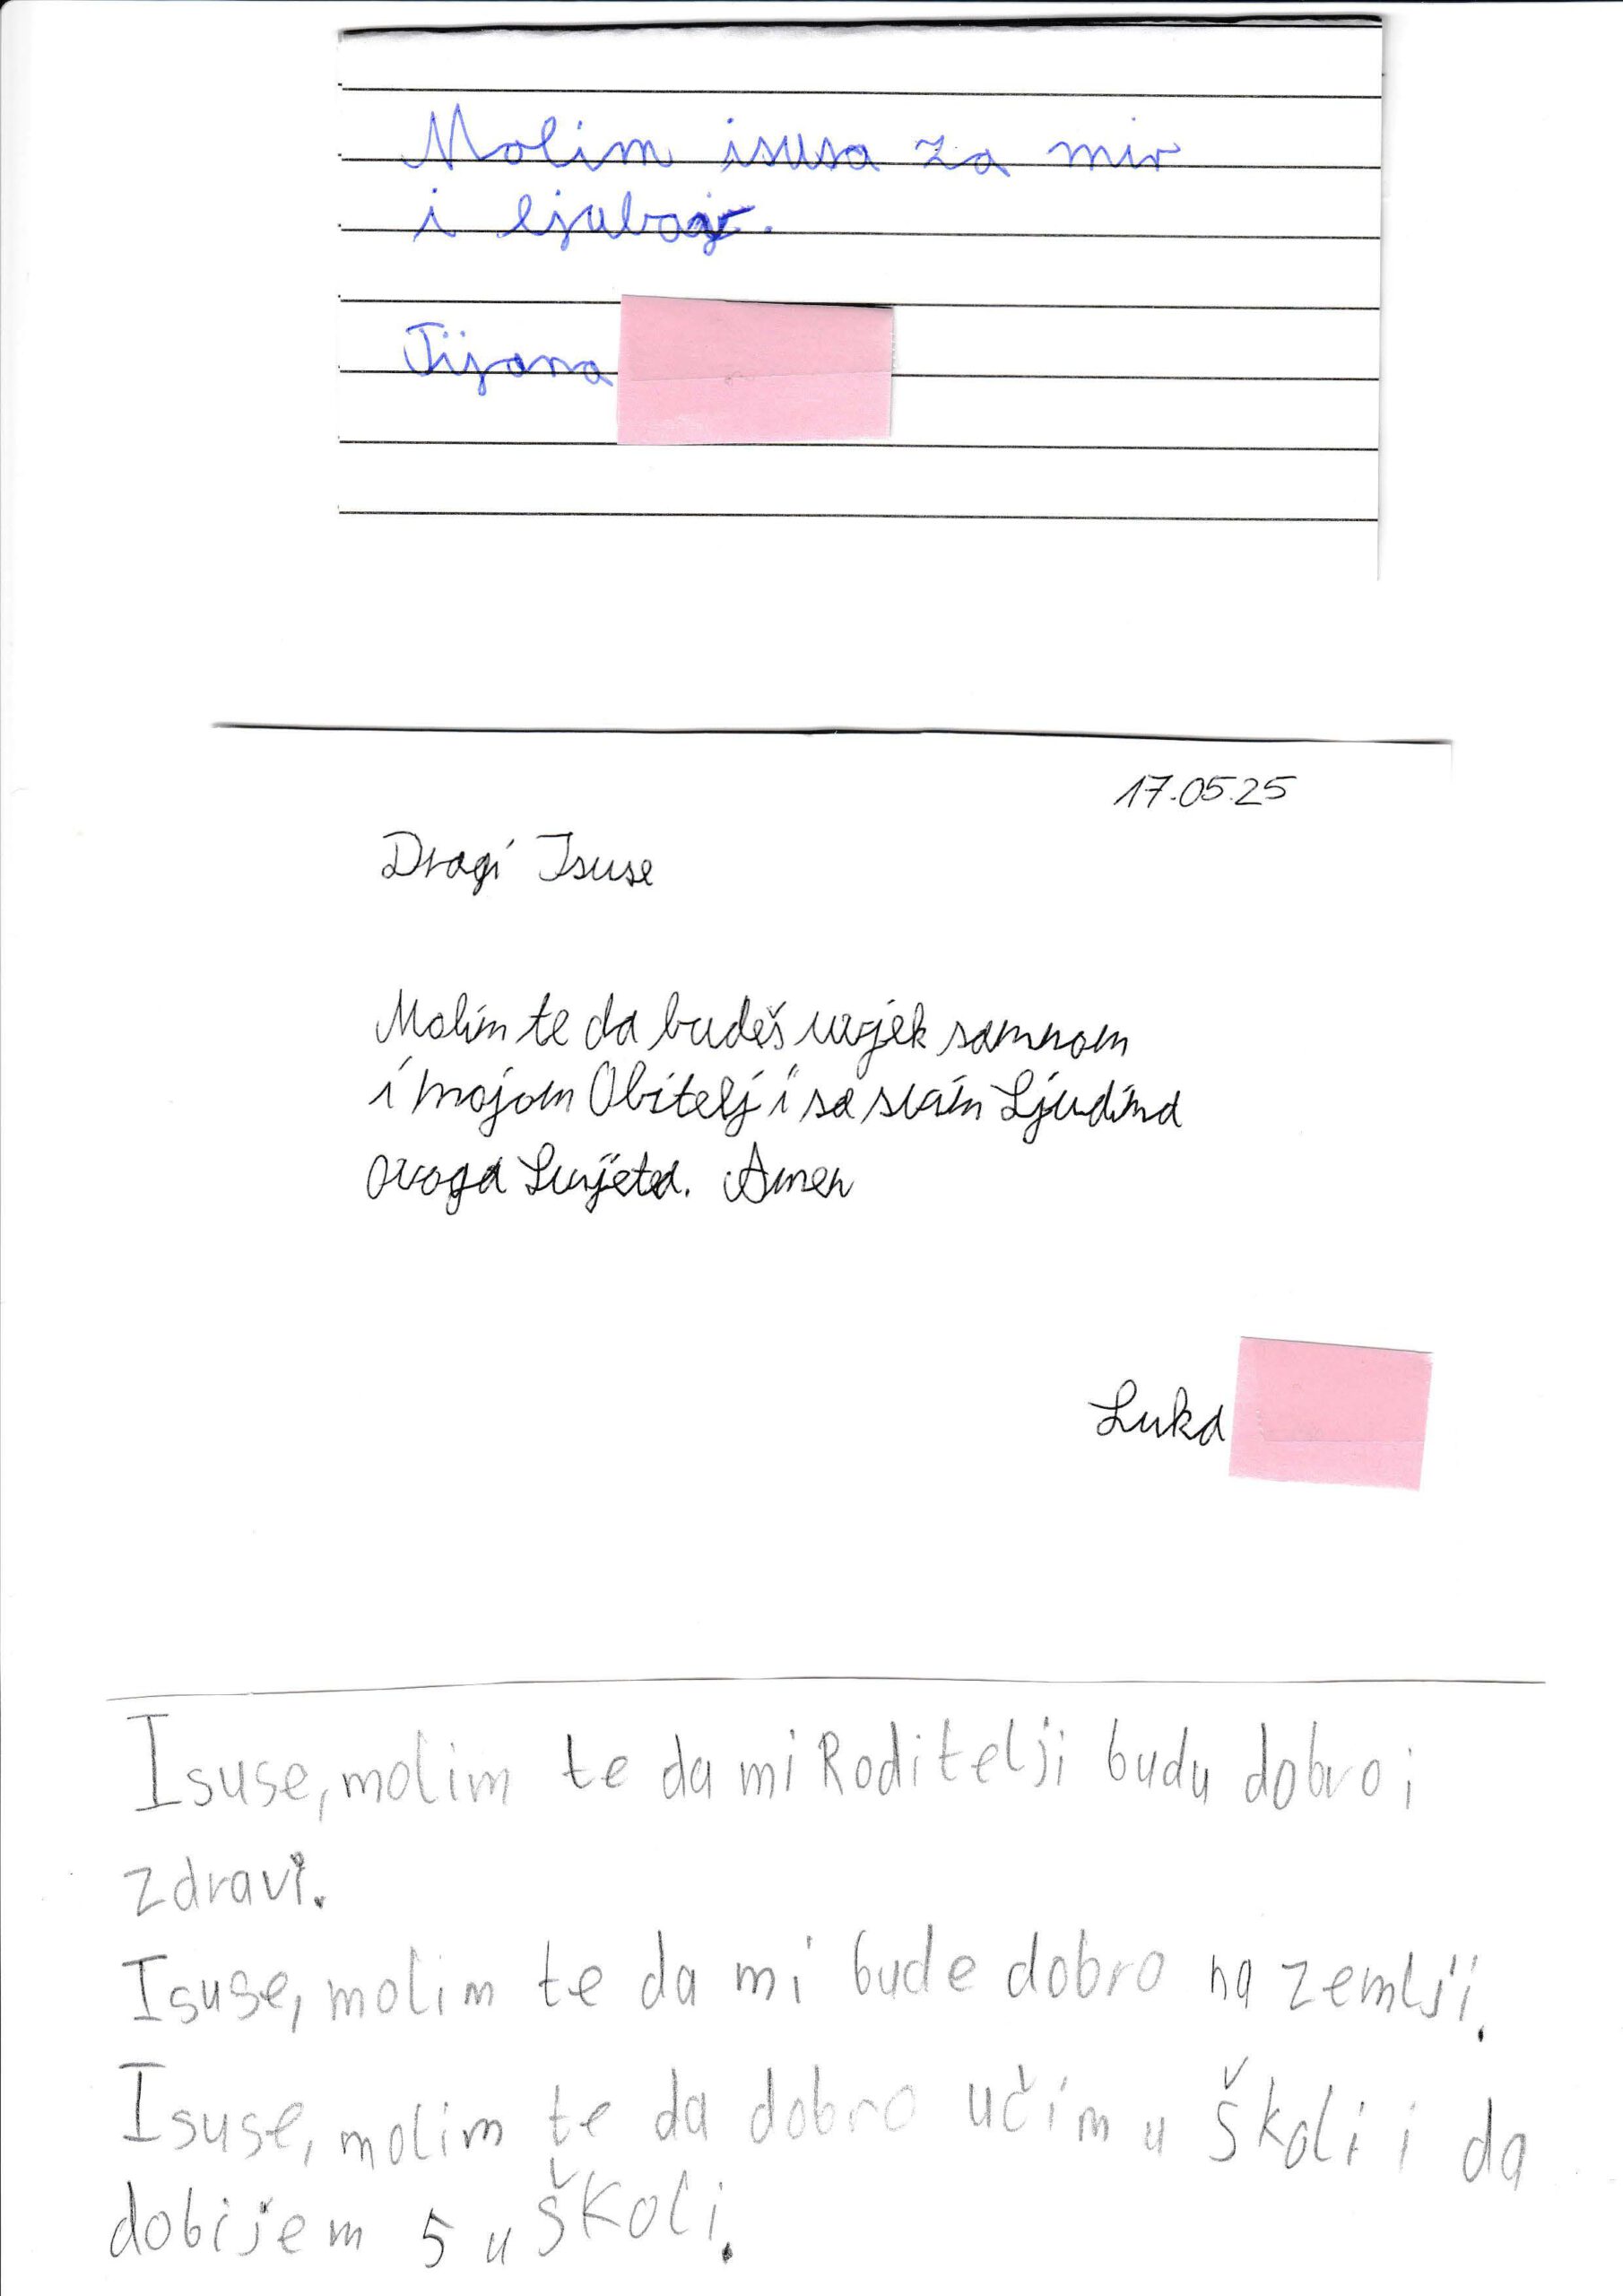 Molim isusa za mir
i ljubav.
Tijana
17.05.25
Dragi Isuse
Molim te da budeš uvjek samnom
i mojom Obitelj i sa svim Ljudima
ovoga Svijeta. Amen
Luka
Isuse, molim te da mi Roditelji budu dobro i
zdravi.
Isuse, molim te da mi bude dobro na zemlji.
Isuse, molim te da dobro učim u školi i da
dobijem 5 u školi.